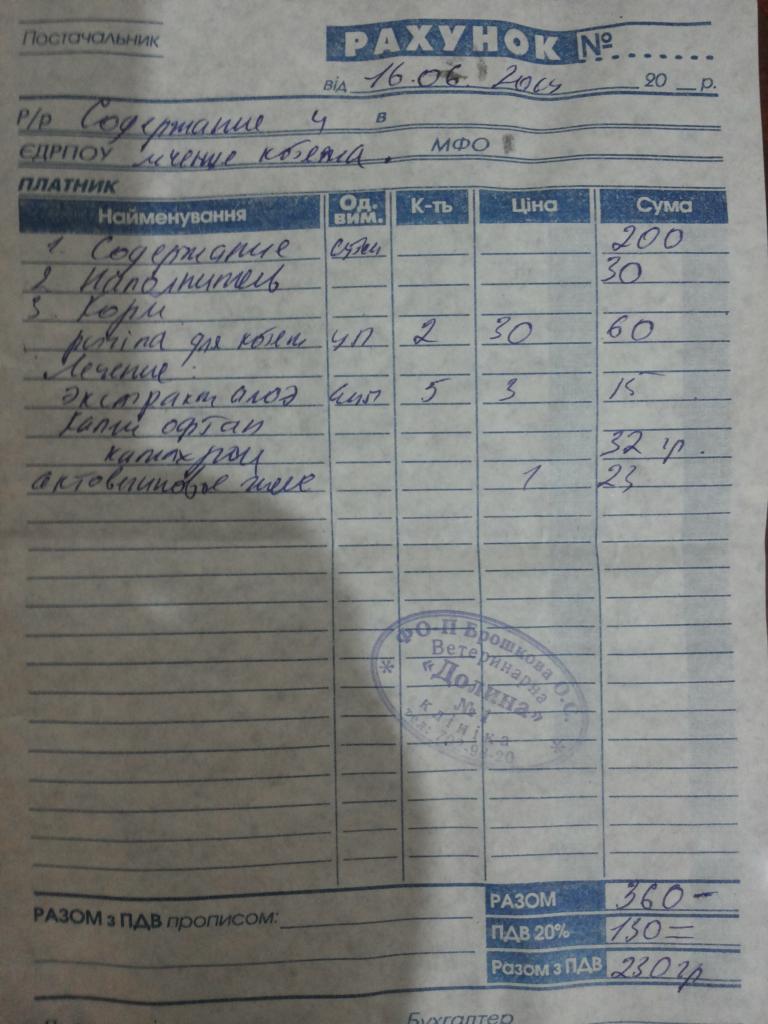 Постачальник
РАХУНОК №
від 16.06. 2014 20 р.
Р/р Содержание и в
ЄДРПОУ лечение котёнка. МФО
ПЛАТНИК
Найменування Од. вим. К-ть Ціна Сума
1. Содержание сутки 200
2 Наполнитель 30
3. Корм
для котят уп 2 30 60
Лечение:
экстракт алоэ 5 3 15
Капли офтан
катахром 32 гр.
актовегиновое желе 1 23
ФО-П Брошкова О.С.
Ветеринарна
«Долина»
№ 1
клініка
РАЗОМ 360-
РАЗОМ з ПДВ прописом:
ПДВ 20% 130=
Разом з ПДВ 230 гр
Бухгалтер